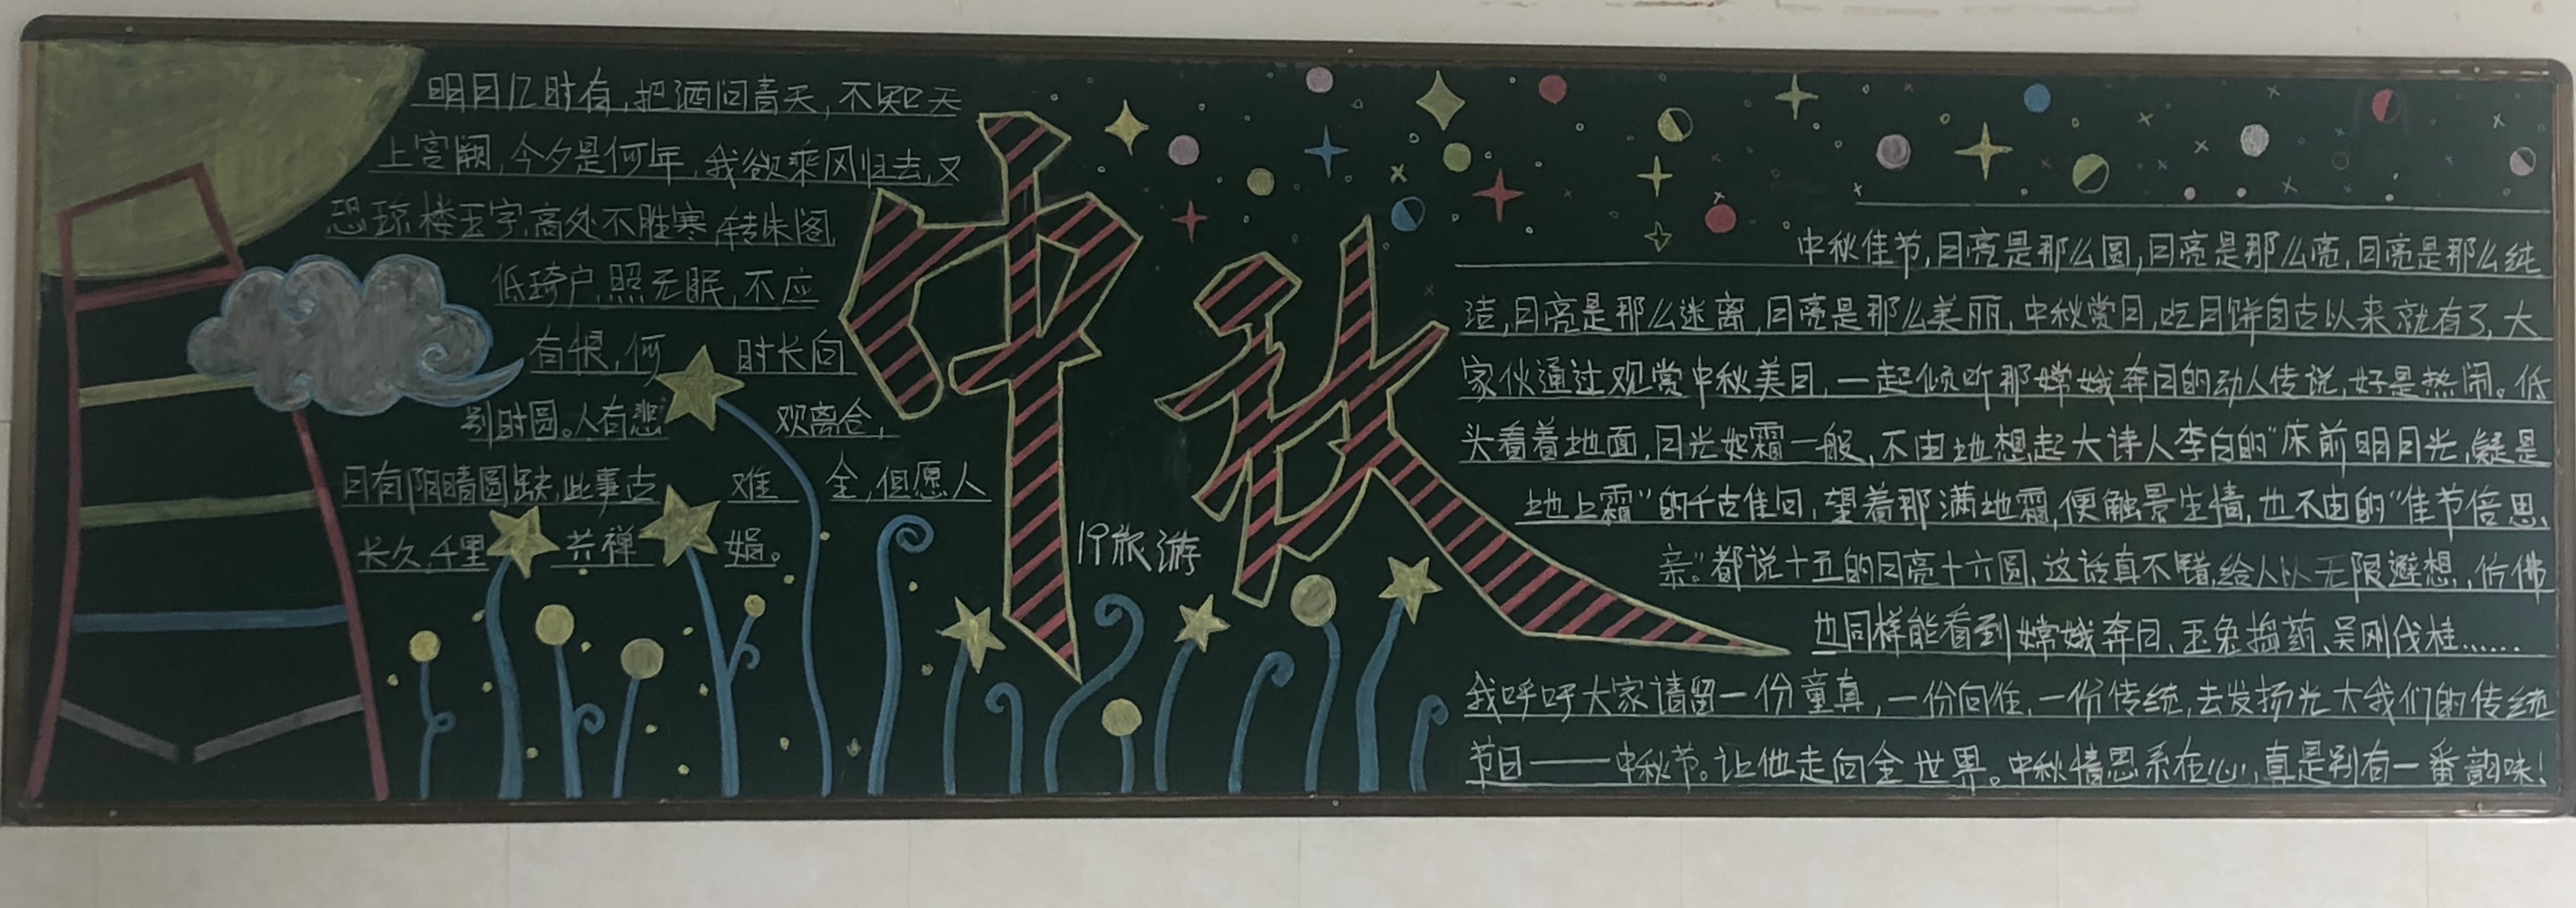 明月几时有,把酒问青天,不知天
上宫阙,今夕是何年,我欲乘风归去,又
恐琼楼玉宇,高处不胜寒,转朱阁,
低琦户,照无眠,不应
有恨,何时长向
别时圆。人有悲观离合,
月有阴晴圆缺,此事古难全,但愿人
长久,千里共禅娟。
中秋
19旅游
中秋佳节,月亮是那么圆,月亮是那么亮,月亮是那么纯
洁,月亮是那么迷离,月亮是那么美丽,中秋赏月,吃月饼自古以来就有了,大
家伙通过观赏中秋美月,一起倾听那嫦娥奔月的动人传说,好是热闹。低
头看着地面,月光如霜一般,不由地想起大诗人李白的“床前明月光,疑是
地上霜”的千古佳句,望着那满地霜,便触景生情,也不由的“佳节倍思
亲。”都说十五的月亮十六圆,这话真不错,给人以无限遐想,仿佛
也同样能看到嫦娥奔月、玉兔捣药、吴刚伐桂……
我呼吁大家请留一份童真,一份向往,一份传统,去发扬光大我们的传统
节日——中秋节。让他走向全世界。中秋情思系在心,真是别有一番韵味!